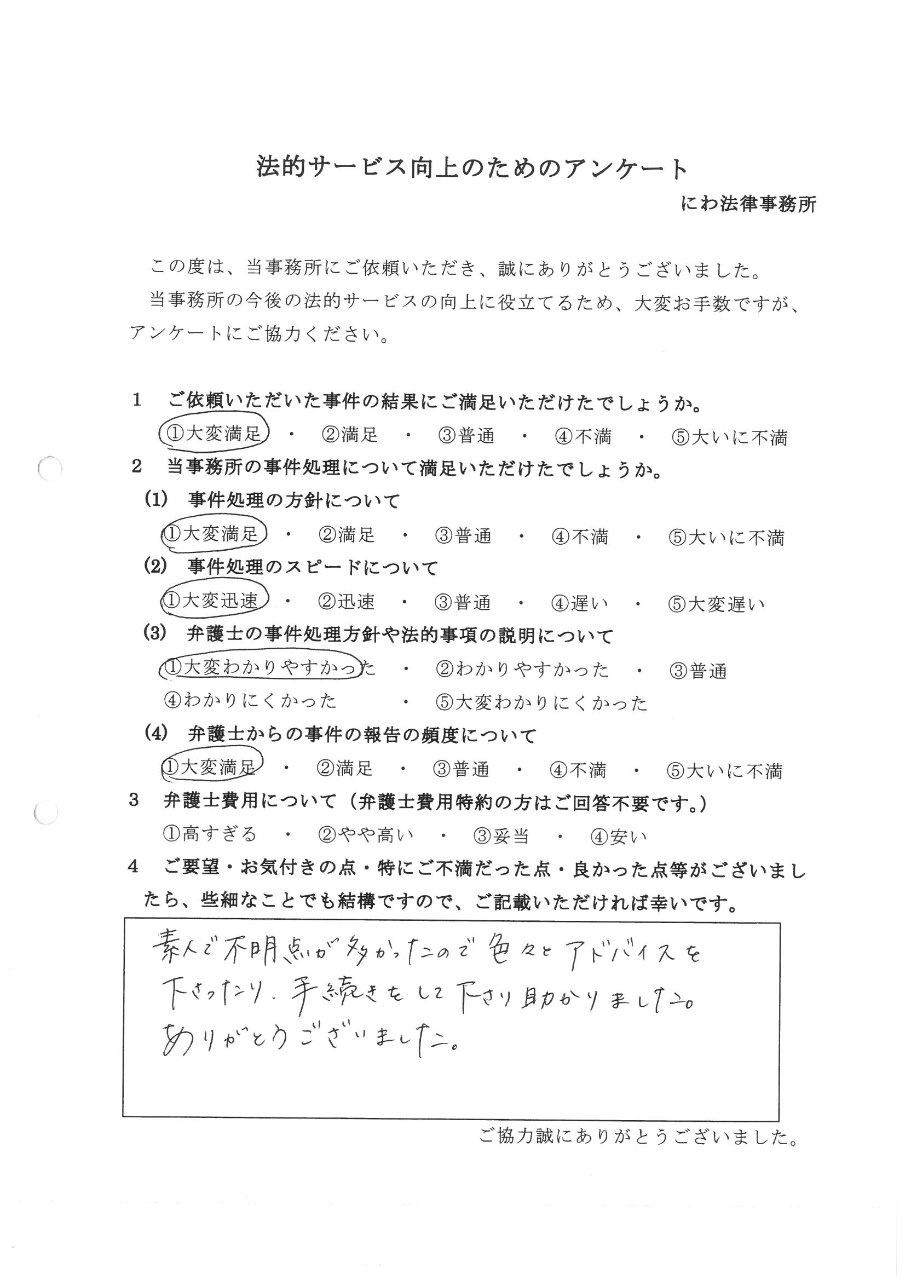 法的サービス向上のためのアンケート
にわ法律事務所
この度は、当事務所にご依頼いただき、誠にありがとうございました。
当事務所の今後の法的サービスの向上に役立てるため、大変お手数ですが、
アンケートにご協力ください。
1 ご依頼いただいた事件の結果にご満足いただけたでしょうか。
①大変満足 ・ ②満足 ・ ③普通 ・ ④不満 ・ ⑤大いに不満
2 当事務所の事件処理について満足いただけたでしょうか。
(1) 事件処理の方針について
①大変満足 ・ ②満足 ・ ③普通 ・ ④不満 ・ ⑤大いに不満
(2) 事件処理のスピードについて
①大変迅速 ・ ②迅速 ・ ③普通 ・ ④遅い ・ ⑤大変遅い
(3) 弁護士の事件処理方針や法的事項の説明について
①大変わかりやすかった ・ ②わかりやすかった ・ ③普通
④わかりにくかった ・ ⑤大変わかりにくかった
(4) 弁護士からの事件の報告の頻度について
①大変満足 ・ ②満足 ・ ③普通 ・ ④不満 ・ ⑤大いに不満
3 弁護士費用について（弁護士費用特約の方はご回答不要です。）
①高すぎる ・ ②やや高い ・ ③妥当 ・ ④安い
4 ご要望・お気付きの点・特にご不満だった点・良かった点等がございまし
たら、些細なことでも結構ですので、ご記載いただければ幸いです。
素人で不明点が多かったので色々とアドバイスを
下さったり、手続きをして下さり助かりました。
ありがとうございました。
ご協力誠にありがとうございました。